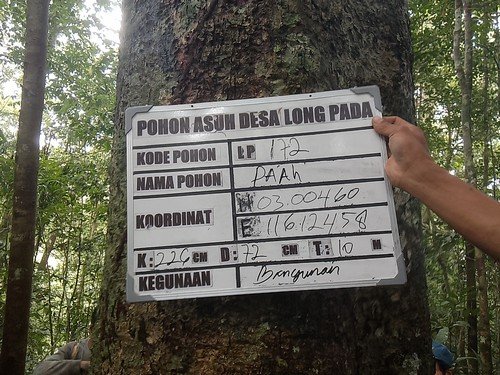 POHON ASUH DESA LONG PADA
KODE POHON LP 172
NAMA POHON PAAh
KOORDINAT N 03.00460
E 116.12458
K: 226 CM D: 72 CM T: 10 M
KEGUNAAN Bangunan